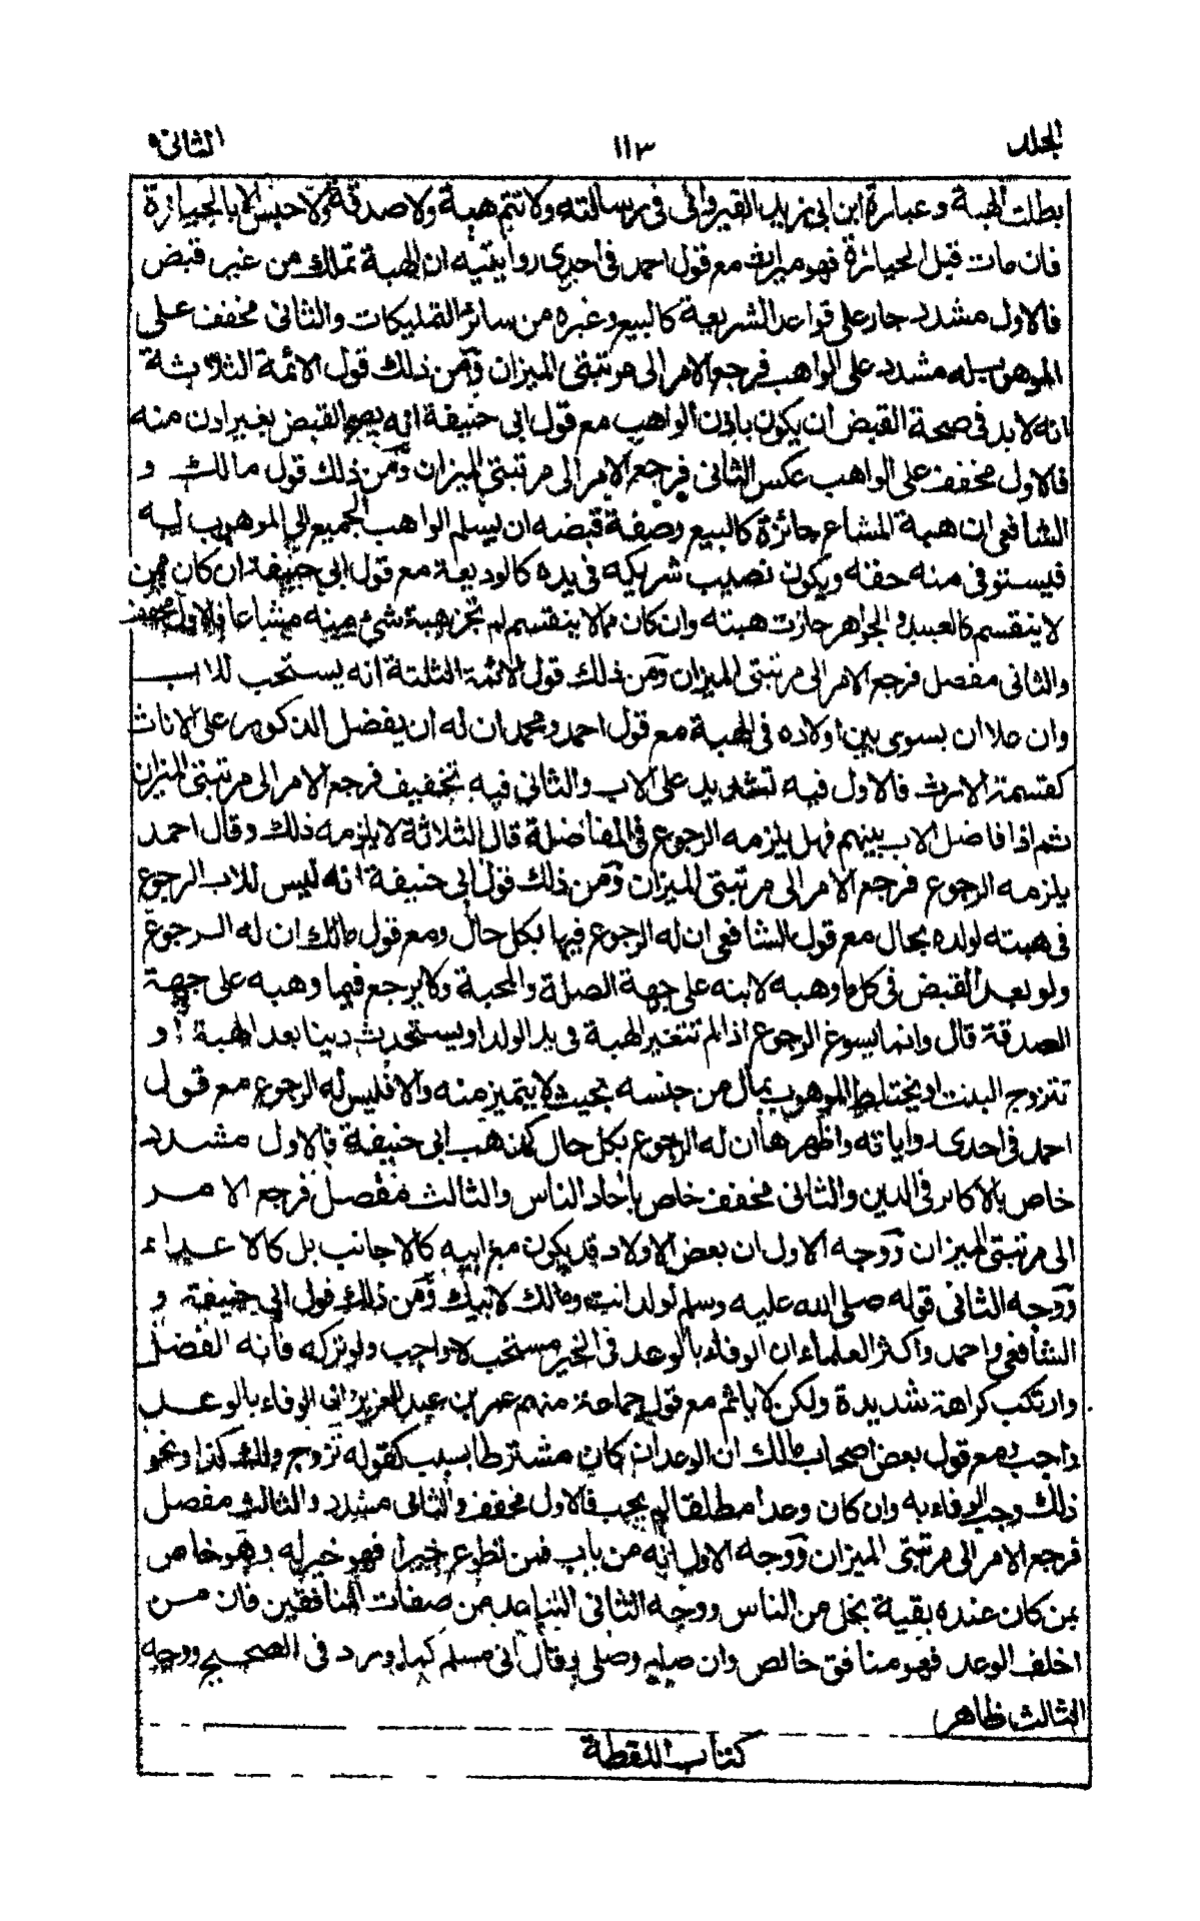 الجلد ١١٣ الثانى
بطلت الهبة وعبارة ابن ابى زيد القيروانى فى رسالته ولا تتم هبة ولا صدقة ولا حبس الا بالحيازة
فان مات قبل الحيازة فهو ميراث مع قول احمد فى احدى روايتيه ان الهبة تملك من غير قبض
فالاول مشدد جار على قواعد الشريعة كالبيع وغيره من سائر التمليكات والثانى مخفف على
الموهوب له مشدد على الواهب فرجع الامر الى مرتبتى الميزان ومن ذلك قول الائمة الثلاثة
انه لا بد فى صحة القبض ان يكون باذن الواهب مع قول ابى حنيفة انه يصح القبض بغير اذن منه
فالاول مخفف على الواهب عكس الثانى فرجع الامر الى مرتبتى الميزان ومن ذلك قول مالك و
الشافعى ان هبة المشاع جائزة كالبيع وصفة قبضه ان يسلم الواهب الجميع الى الموهوب له
فيستوفى منه حقه ويكون نصيب شريكه فى يده كالوديعة مع قول ابى حنيفة ان كان مما
لا ينقسم كالعبيد والجواهر جازت هبته وان كان مما ينقسم لم تجز هبة شئ منه مشاعا فالاول مخفف
والثانى مفصل فرجع الامر الى مرتبتى الميزان ومن ذلك قول الائمة الثلثة انه يستحب للاب
وان علا ان يسوى بين اولاده فى الهبة مع قول احمد ومحمد ان له ان يفضل الذكور على الاناث
كقسمة الارث فالاول فيه تشديد على الاب والثانى فيه تخفيف فرجع الامر الى مرتبتى الميزان
ثم اذا فاضل الاب بينهم فهل يلزمه الرجوع فى المفاضلة قال الثلاثة لا يلزمه ذلك وقال احمد
يلزمه الرجوع فرجع الامر الى مرتبتى الميزان ومن ذلك قول ابى حنيفة انه ليس للاب الرجوع
فى هبته لولده بحال مع قول الشافعى ان له الرجوع فيها بكل حال ومع قول مالك ان له الرجوع
ولو بعد القبض فى كل ما وهبه لابنه على جهة الصلة والمحبة ولا يرجع فيما وهبه على جهة
الصدقة قال وانما يسوغ الرجوع اذا لم تتغير الهبة فى يد الولد او يستحدث دينا بعد الهبة او
تتزوج البنت او يختلط الموهوب بمال من جنسه بحيث لا يتميز منه والا فليس له الرجوع مع قول
احمد فى احدى رواياته واظهرها ان له الرجوع بكل حال كمذهب ابى حنيفة فالاول مشدد
خاص بالاكابر فى الدين والثانى مخفف خاص باحاد الناس والثالث مفصل فرجع الامر
الى مرتبتى الميزان ووجه الاول ان بعض الاولاد قد يكون مع ابيه كالاجانب بل كالاعداء
ووجه الثانى قوله صلى الله عليه وسلم لولد انت ومالك لابيك ومن ذلك قول ابى حنيفة و
الشافعى واحمد واكثر العلماء ان الوفاء بالوعد فى الخير مستحب لا واجب ولو تركه فاته الفضل
وارتكب كراهة شديدة ولكن لا ياثم مع قول جماعة منهم عمر بن عبد العزيز ان الوفاء بالوعد
واجب ومع قول بعض اصحاب مالك ان الوعد ان كان مشترطا بسبب كقوله تزوج ولك كذا ونحو
ذلك وجب الوفاء به وان كان وعدا مطلقا لم يجب فالاول مخفف والثانى مشدد والثالث مفصل
فرجع الامر الى مرتبتى الميزان ووجه الاول انه من باب فمن تطوع خيرا فهو خير له وهو خاص
بمن كان عنده بقية بخل من الناس ووجه الثانى التباعد من صفات المنافقين فان من
اخلف الوعد فهو منافق خالص وان صام وصلى وقال انى مسلم كما ورد فى الصحيح ووجه
الثالث ظاهر
كتاب اللقطة